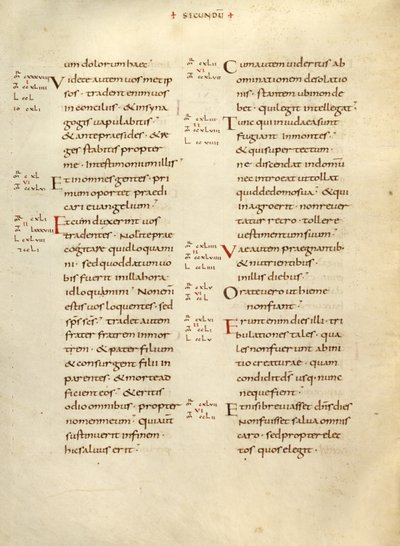 + SECUNDŪ +
um dolorum haec
Videte autem vos metip
sos · tradent enim vos
in conciliis · & insyna
gogis vapulabitis ·
& ante praesides · & re
ges stabitis propter
me · In testimonium illis
Et in omnes gentes · pri
mum oportet praedi
cari evangelium
Et cum duxerint vos
tradentes · Nolite prae
cogitare quid loquami
ni · sed quod datum vo
bis fuerit in illa hora
id loquamini · Non enī
estis vos loquentes · sed
sp̄s sc̄s · tradet autem
frater fratrem in mor
tem · & pater filium
& consurgent filii in
parentes · & morte ad
ficient eos · & eritis
odio omnibus · propter
nomen meum · Qui aut
sustinuerit in finem ·
hic salvus erit ·
Cum autem videritis ab
ominationem desolatio
nis · stantem ubi non de
bet · qui legit intellegat
Tunc qui in iudaea sunt
fugiant in montes ·
& qui super tectum ·
ne discendat in domū
nec introeat ut tollat
quid de domo sua · & qui
in agro erit · non rever
tatur retro · tollere
vestimentum suum
Vae autem praegnantib;
& nutrientibus ·
in illis diebus
Orate vero ut hieme
non fiant ·
Erunt enim dies illi · tri
bulationes tales · qua
les non fuerunt ab ini
tio creaturae · quam
condidit d̄s usq; nunc
neque fient
Et nisi breviasset dn̄s dies
Non fuisset salva omnis
caro · sed propter elec
tos quos elegit ·